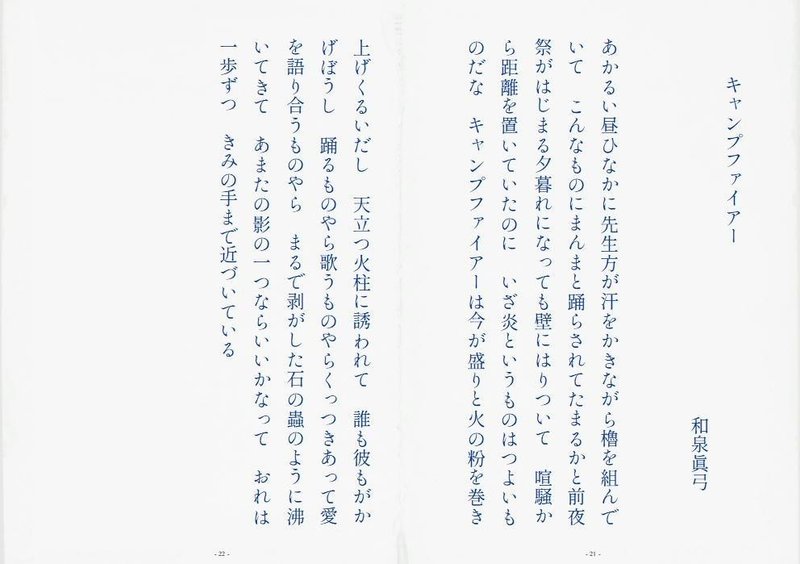 キャンプファイアー
和泉眞弓
あかるい昼ひなかに先生方が汗をかきながら櫓を組んで
いて　こんなものにまんまと踊らされてたまるかと前夜
祭がはじまる夕暮れになっても壁にはりついて　喧騒か
ら距離を置いていたのに　いざ炎というものはつよいも
のだな　キャンプファイアーは今が盛りと火の粉を巻き
- 21 -
上げくるいだし　天立つ火柱に誘われて　誰も彼もがか
げぼうし　踊るものやら歌うものやらくっつきあって愛
を語り合うものやら　まるで剥がした石の蟲のように沸
いてきて　あまたの影の一つならいいかなって　おれは
一歩ずつ　きみの手まで近づいている
- 22 -